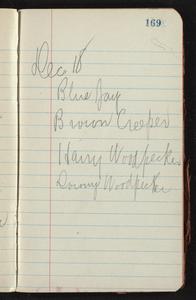 169
Dec 18
Blue Jay
Brown Creeper
Hairy Woodpecker
Downy Woodpecker